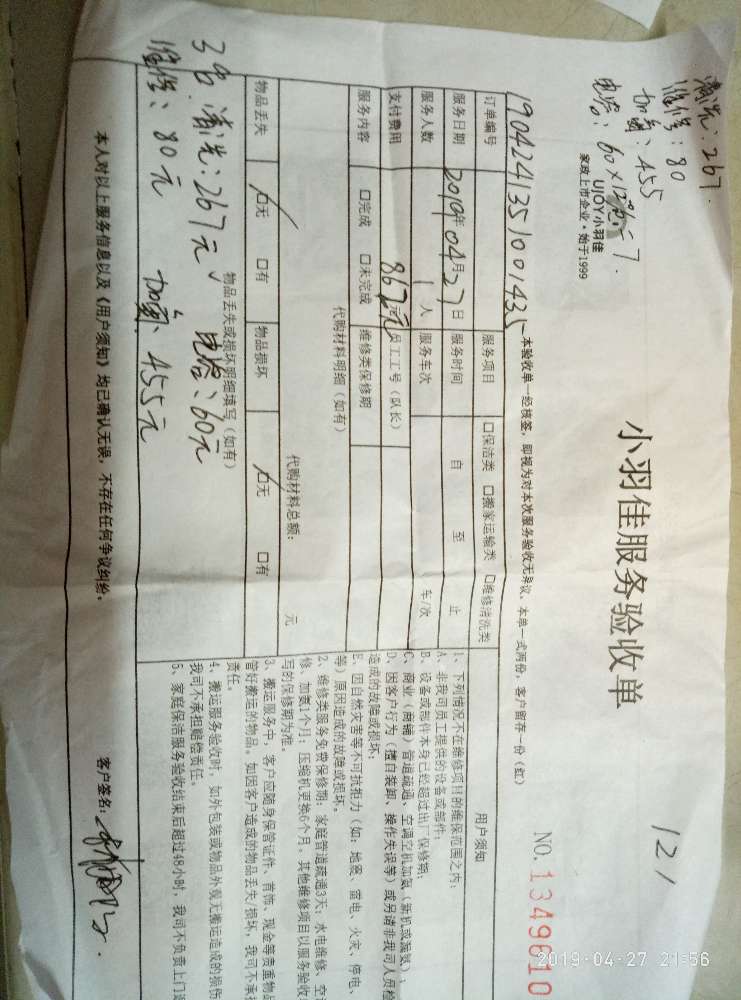 清洗:267.
维修:80
加氟:455
电容:60×12%=7.
UJOY小羽佳
家政上市企业·始于1999
小羽佳服务验收单
121
NO. 1349610
1904241351001435
本验收单一经核签,即视为对本次服务验收无异议,本单一式两份,客户留存一份(红)
订单编号
服务项目 □保洁类 □搬家运输类 □维修清洗类
服务日期 2019年04月27日 服务时间 自 至 止
服务人数 1人 服务车次 车/次
支付费用 862元 员工工号(队长)
服务内容 □完成 □未完成 维修类保修期
代购材料明细(如有)
代购材料总额: 元
物品丢失 □无 □有 物品损坏 □无 □有
物品丢失或损坏明细填写(如有)
3台 清洗:267元 电容:60元
维修:80元 加氟:455元
本人对以上服务信息以及《用户须知》均已确认无误,不存在任何争议纠纷。
客户签名:
用户须知
1、下列情况不在维修项目的维保范围之内:
A、非我司员工提供的设备或部件;
B、设备或部件本身已经超过出厂保修期;
C、商业(商铺)管道疏通、空调空机加氨(新机或漏氨);
D、因客户行为(擅自装卸、操作失误等)或另请非我司人员检
造成的故障或损坏;
E、因自然灾害等不可抗拒力(如:地震、雷电、火灾、停电、
等)原因造成的故障或损坏。
2、维修类服务免费保修期:家庭管道疏通3天;水电维修、空
修、加氨1个月;压缩机更换6个月,其他维修项目以服务验收
写的保修期为准。
3、搬运服务中,客户应随身保管证件、首饰、现金等贵重物品
管好搬运的物品。如因客户造成的物品丢失/损坏,我司不承担
责任。
4、搬运服务验收时,如外包装或物品外观无搬运造成的损伤
我司不承担赔偿责任。
5、家庭保洁服务验收结束后超过48小时,我司不负责上门返
2019-04-27 21:56